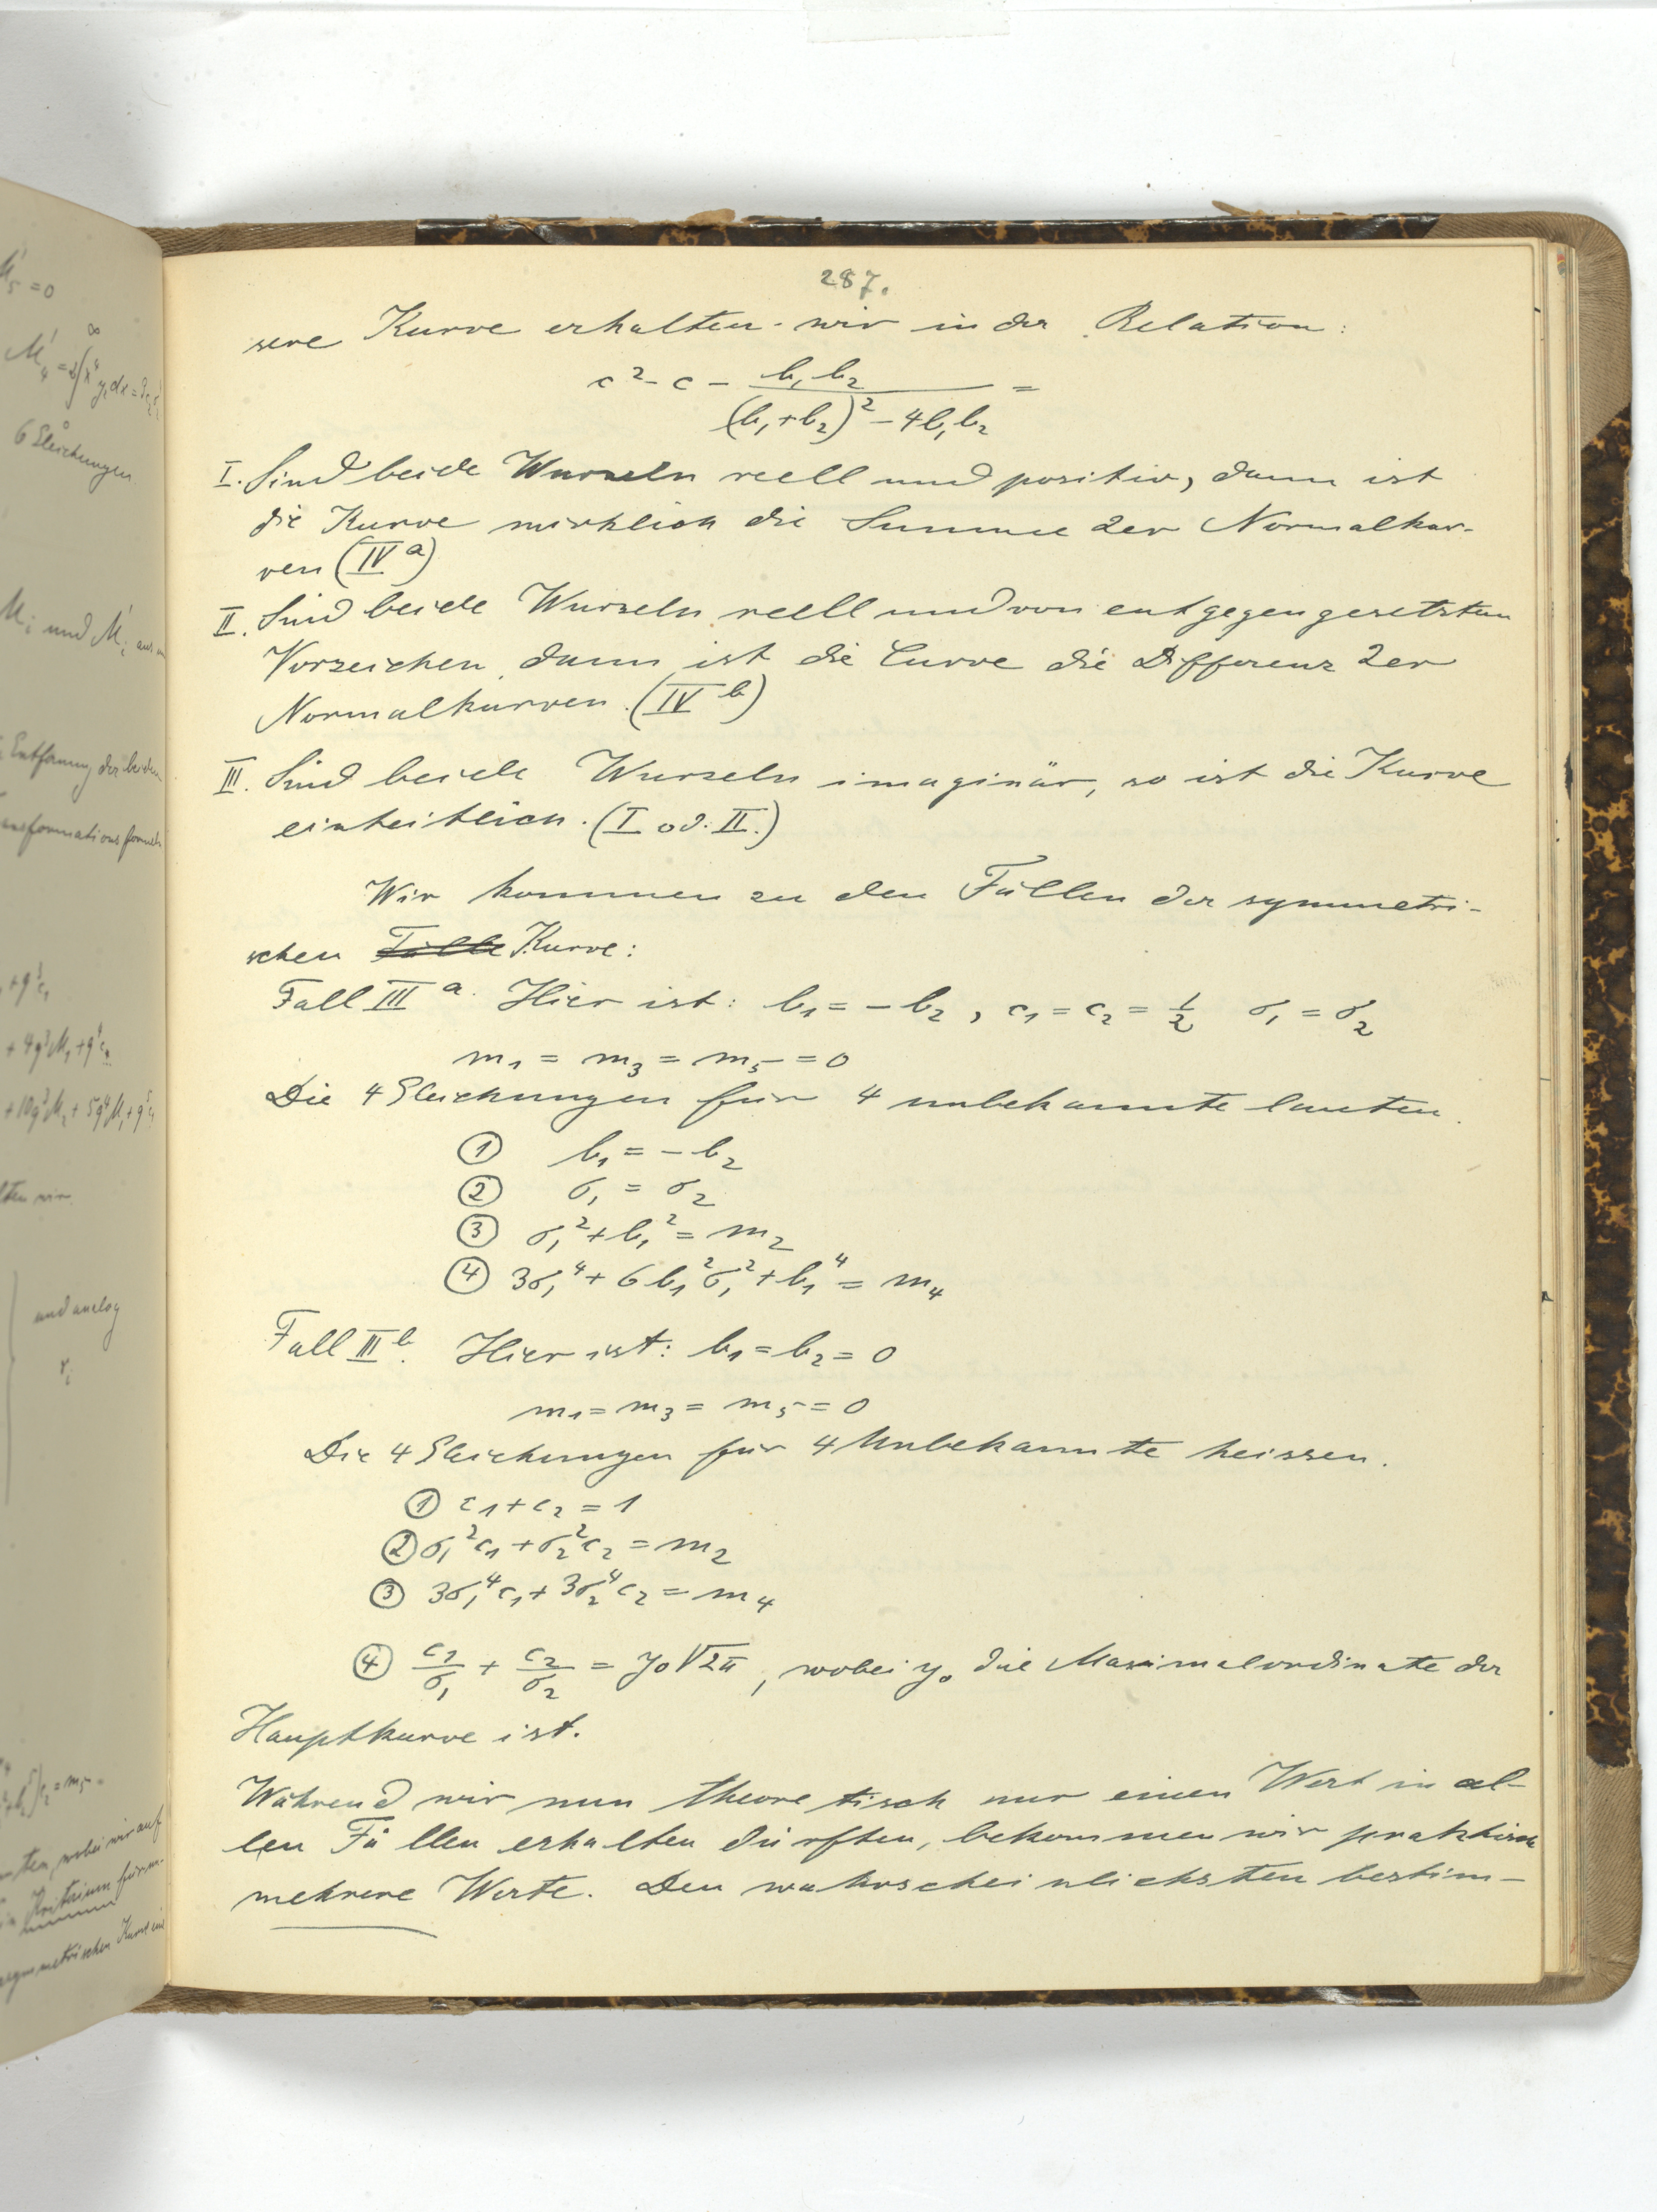 287.
sere Kurve erhalten wir in der Relation:
c² - c - b₁b₂ / ((b₁+b₂)² - 4b₁b₂) =
I. Sind beide Wurzeln reell und positiv, dann ist
die Kurve wirklich die Summe 2er Normalkur-
ven (IVᵃ)
II. Sind beide Wurzeln reell und von entgegengesetzten
Vorzeichen, dann ist die Curve die Differenz 2er
Normalkurven. (IVᵇ)
III. Sind beide Wurzeln imaginär, so ist die Kurve
einheitlich. (I od. II.)
Wir kommen zu den Fällen der symmetri-
schen Fälle Kurve:
Fall IIIᵃ. Hier ist: b₁ = -b₂, c₁ = c₂ = 1/2 σ₁ = σ₂
m₁ = m₃ = m₅ = 0
Die 4 Gleichungen für 4 unbekannte lauten.
① b₁ = -b₂
② σ₁ = σ₂
③ σ₁² + b₁² = m₂
④ 3σ₁⁴ + 6b₁²σ₁² + b₁⁴ = m₄
Fall IIIᵇ. Hier ist: b₁ = b₂ = 0
m₁ = m₃ = m₅ = 0
Die 4 Gleichungen für 4 Unbekannte heissen.
① c₁ + c₂ = 1
② σ₁²c₁ + σ₂²c₂ = m₂
③ 3σ₁⁴c₁ + 3σ₂⁴c₂ = m₄
④ c₁/σ₁ + c₂/σ₂ = y₀√2π, wobei y₀ die Maximalordinate der
Hauptkurve ist.
Während wir nun theoretisch nur einen Wert in al-
len Fällen erhalten dürften, bekommen wir praktisch
mehrere Werte. Den wahrscheinlichsten bestim-
M'₅ = 0
6 Gleichungen
Mᵢ und M'ᵢ aus
Entfernung der beiden
ansformationsformeln
+ 4q³M₁ + q⁴c₁
+ 10q³M₂ + 5q⁴M₁ + q⁵c₁
lten wir
und analog
rᵢ
ten, wobei wir auf
Kriterium für m
asymmetrischen Kurve ein